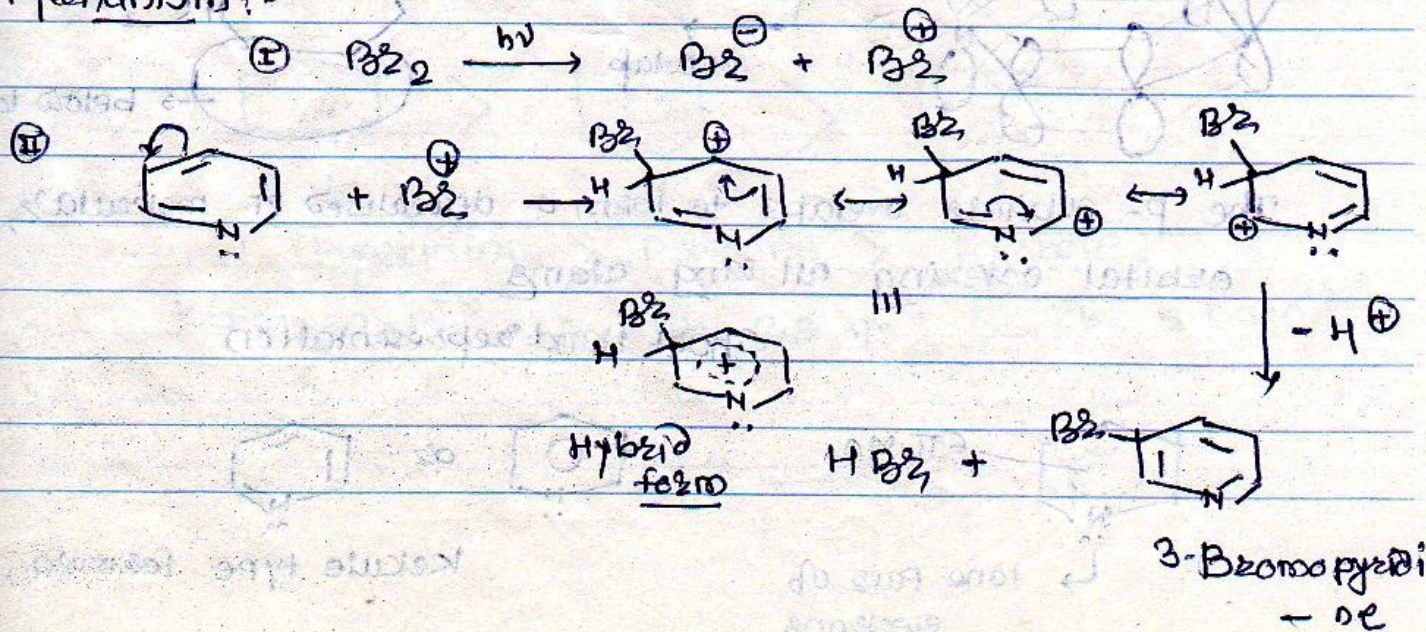 Ⓘ Br₂ hν → Br⊖ + Br⊕
Ⓘⓘ N + Br⊕ → Br H ⊕ N ↔ Br H N ⊕ ↔ Br H ⊕ N
Br H + N ||| - H⊕
Hybrid form
HBr + Br N
3-Bromopyridi
- ne